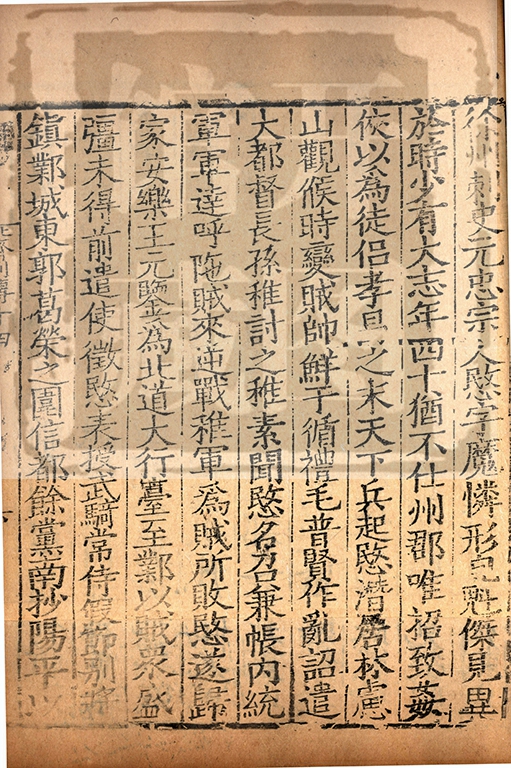 徐州刺史元忠宗人愍字魔憐形皃魁傑見異
於時少有大志年四十猶不仕州郡唯招致姦
俠以為徒侣孝昌之末天下兵起愍潛居林慮
山觀候時變賊帥鮮于脩禮毛普賢作亂詔遣
大都督長孫稚討之稚素聞愍名召兼帳内統
軍軍達呼陁賊來逆戰稚軍爲賊所敗愍遂歸
家安樂王元鑒爲北道大行臺至鄴以賊衆盛
彊未得前遣使徵愍表授武騎常侍假節别將
鎮鄴城東郭葛榮之圍信都餘黨南抄陽平以
列傳十四